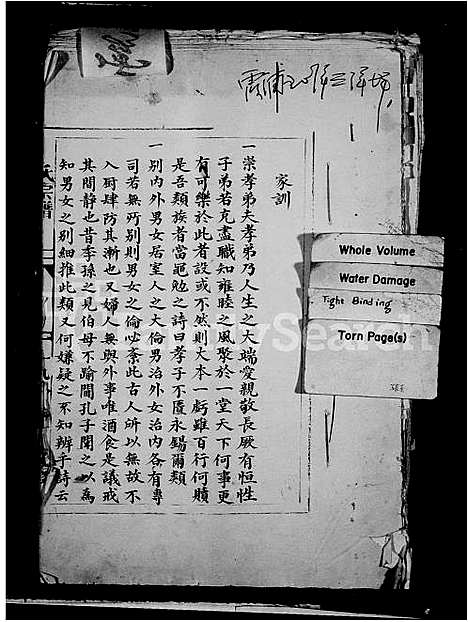 家訓
一崇孝弟夫孝弟乃人生之大端愛親敬長厥有恒性
子弟若克盡職知雍睦之風聚於一堂天下何事更
有可樂於此者設或不然則大本一虧雖百行何贖
是吾類族者當亟勉之詩曰孝子不匱永錫爾類
一別內外男女居室人之大倫男治外女治內各有專
司若無所別則男女之倫必紊此古人所以無故不
入厨肆防其漸也又婦人無與外事唯酒食是議戒
其閒靜也昔季孫之見伯母不踰閫孔子聞之以為
知男女之別細推此類又何嫌疑之不知辨乎詩云
氏宗譜
Whole Volume
Water Damage
Tight Binding
Torn Page(s)
FamilySearch